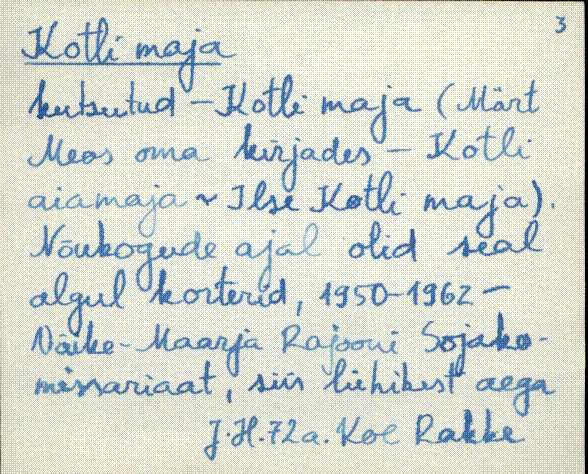 3
Kotli maja
kutsutud – Kotli maja (Märt
Meos oma kirjades – Kotli
aiamaja ~ Ilse Kotli maja).
Nõukogude ajal olid seal
algul korterid, 1950–1962 –
Väike-Maarja Rajooni Sõjako-
missariaat, siis lühikest aega
J.H. 72a. Koe Rakke